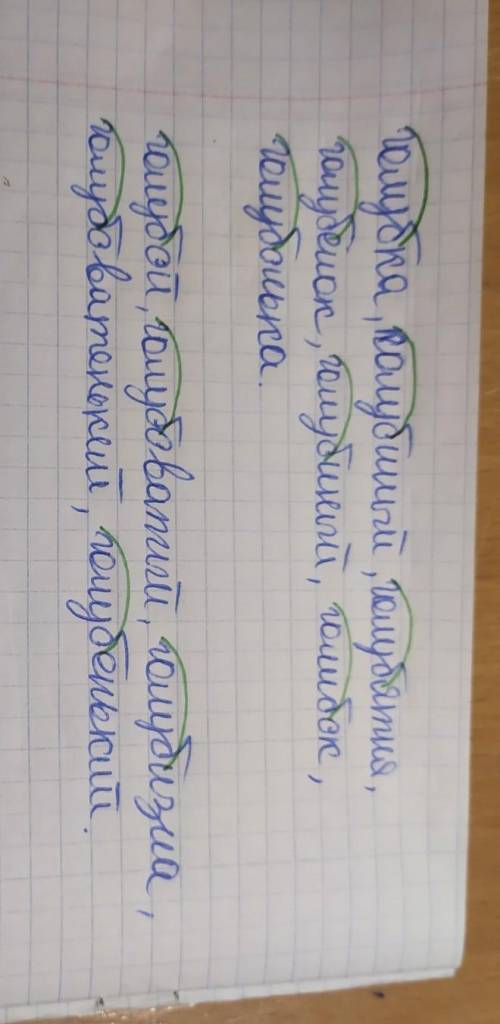 голубка, голубятня,
голубёнок, голубиный, голубок,
голубонька.
голубой, голубоватый, голубизна,
голубоватенький, голубенький.